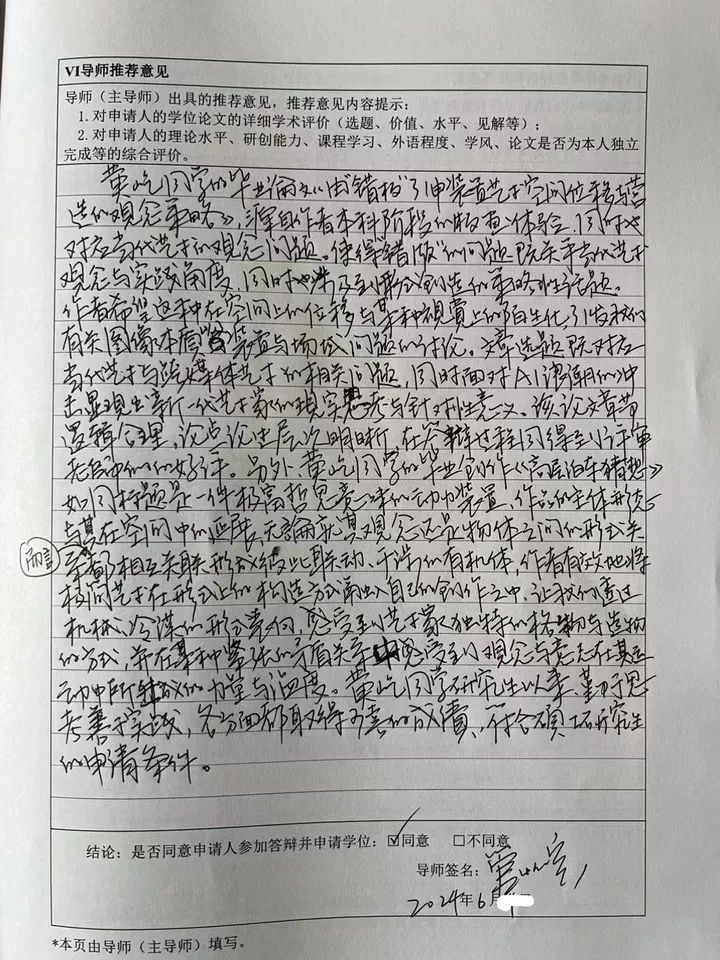 VI导师推荐意见
导师（主导师）出具的推荐意见，推荐意见内容提示：
1. 对申请人的学位论文的详细学术评价（选题、价值、水平、见解等）；
2. 对申请人的理论水平、研创能力、课程学习、外语程度、学风、论文是否为本人独立
完成等的综合评价。
黄屹同学的毕业论文《由“错版”引申装置艺术空间位移与营
造的观念策略》，源自作者本科阶段的版画体验。同时也
对应当代艺术的观念问题。使得“错版”的问题既关乎当代艺术
观念与实践角度，同时也涉及到形式创造的策略性话题。
作者希望这种在空间上的位移与某种视觉上的陌生化，引发我们
有关图像本质、装置与场域问题的讨论。文章选题既对应
当代艺术与跨媒体艺术的相关问题，同时面对AI浪潮的冲
击显现出新一代艺术家的现实思考与针对性意义。该论文章节
逻辑合理，论点论述层次明晰，在答辩过程同得到评审
老师们的好评。另外黄屹同学的毕业创作《高层泊车猜想》
如同标题是一件极富哲思意味的动力装置，作品的主体形态
与其在空间中的延展，无论就其观念还是物体之间的形式关
而言
系都相互关联形成彼此联动、干涉的有机体，作者有效地将
极简艺术在形式上的构造方式融入自己的创作之中，让我们透过
机械、冷漠的形式表向，感受到艺术家独特的格物与造物
的方式，并在某种紧张的矛盾关系中感受到观念与意志在其运
动中所形成的力量与温度。黄屹同学研究生以来，勤于思
考善于实践，各方面都取得可喜的成绩，符合硕士研究生
的申请条件。
结论：是否同意申请人参加答辩并申请学位：☑同意 □不同意
导师签名：
2024年6月
*本页由导师（主导师）填写。